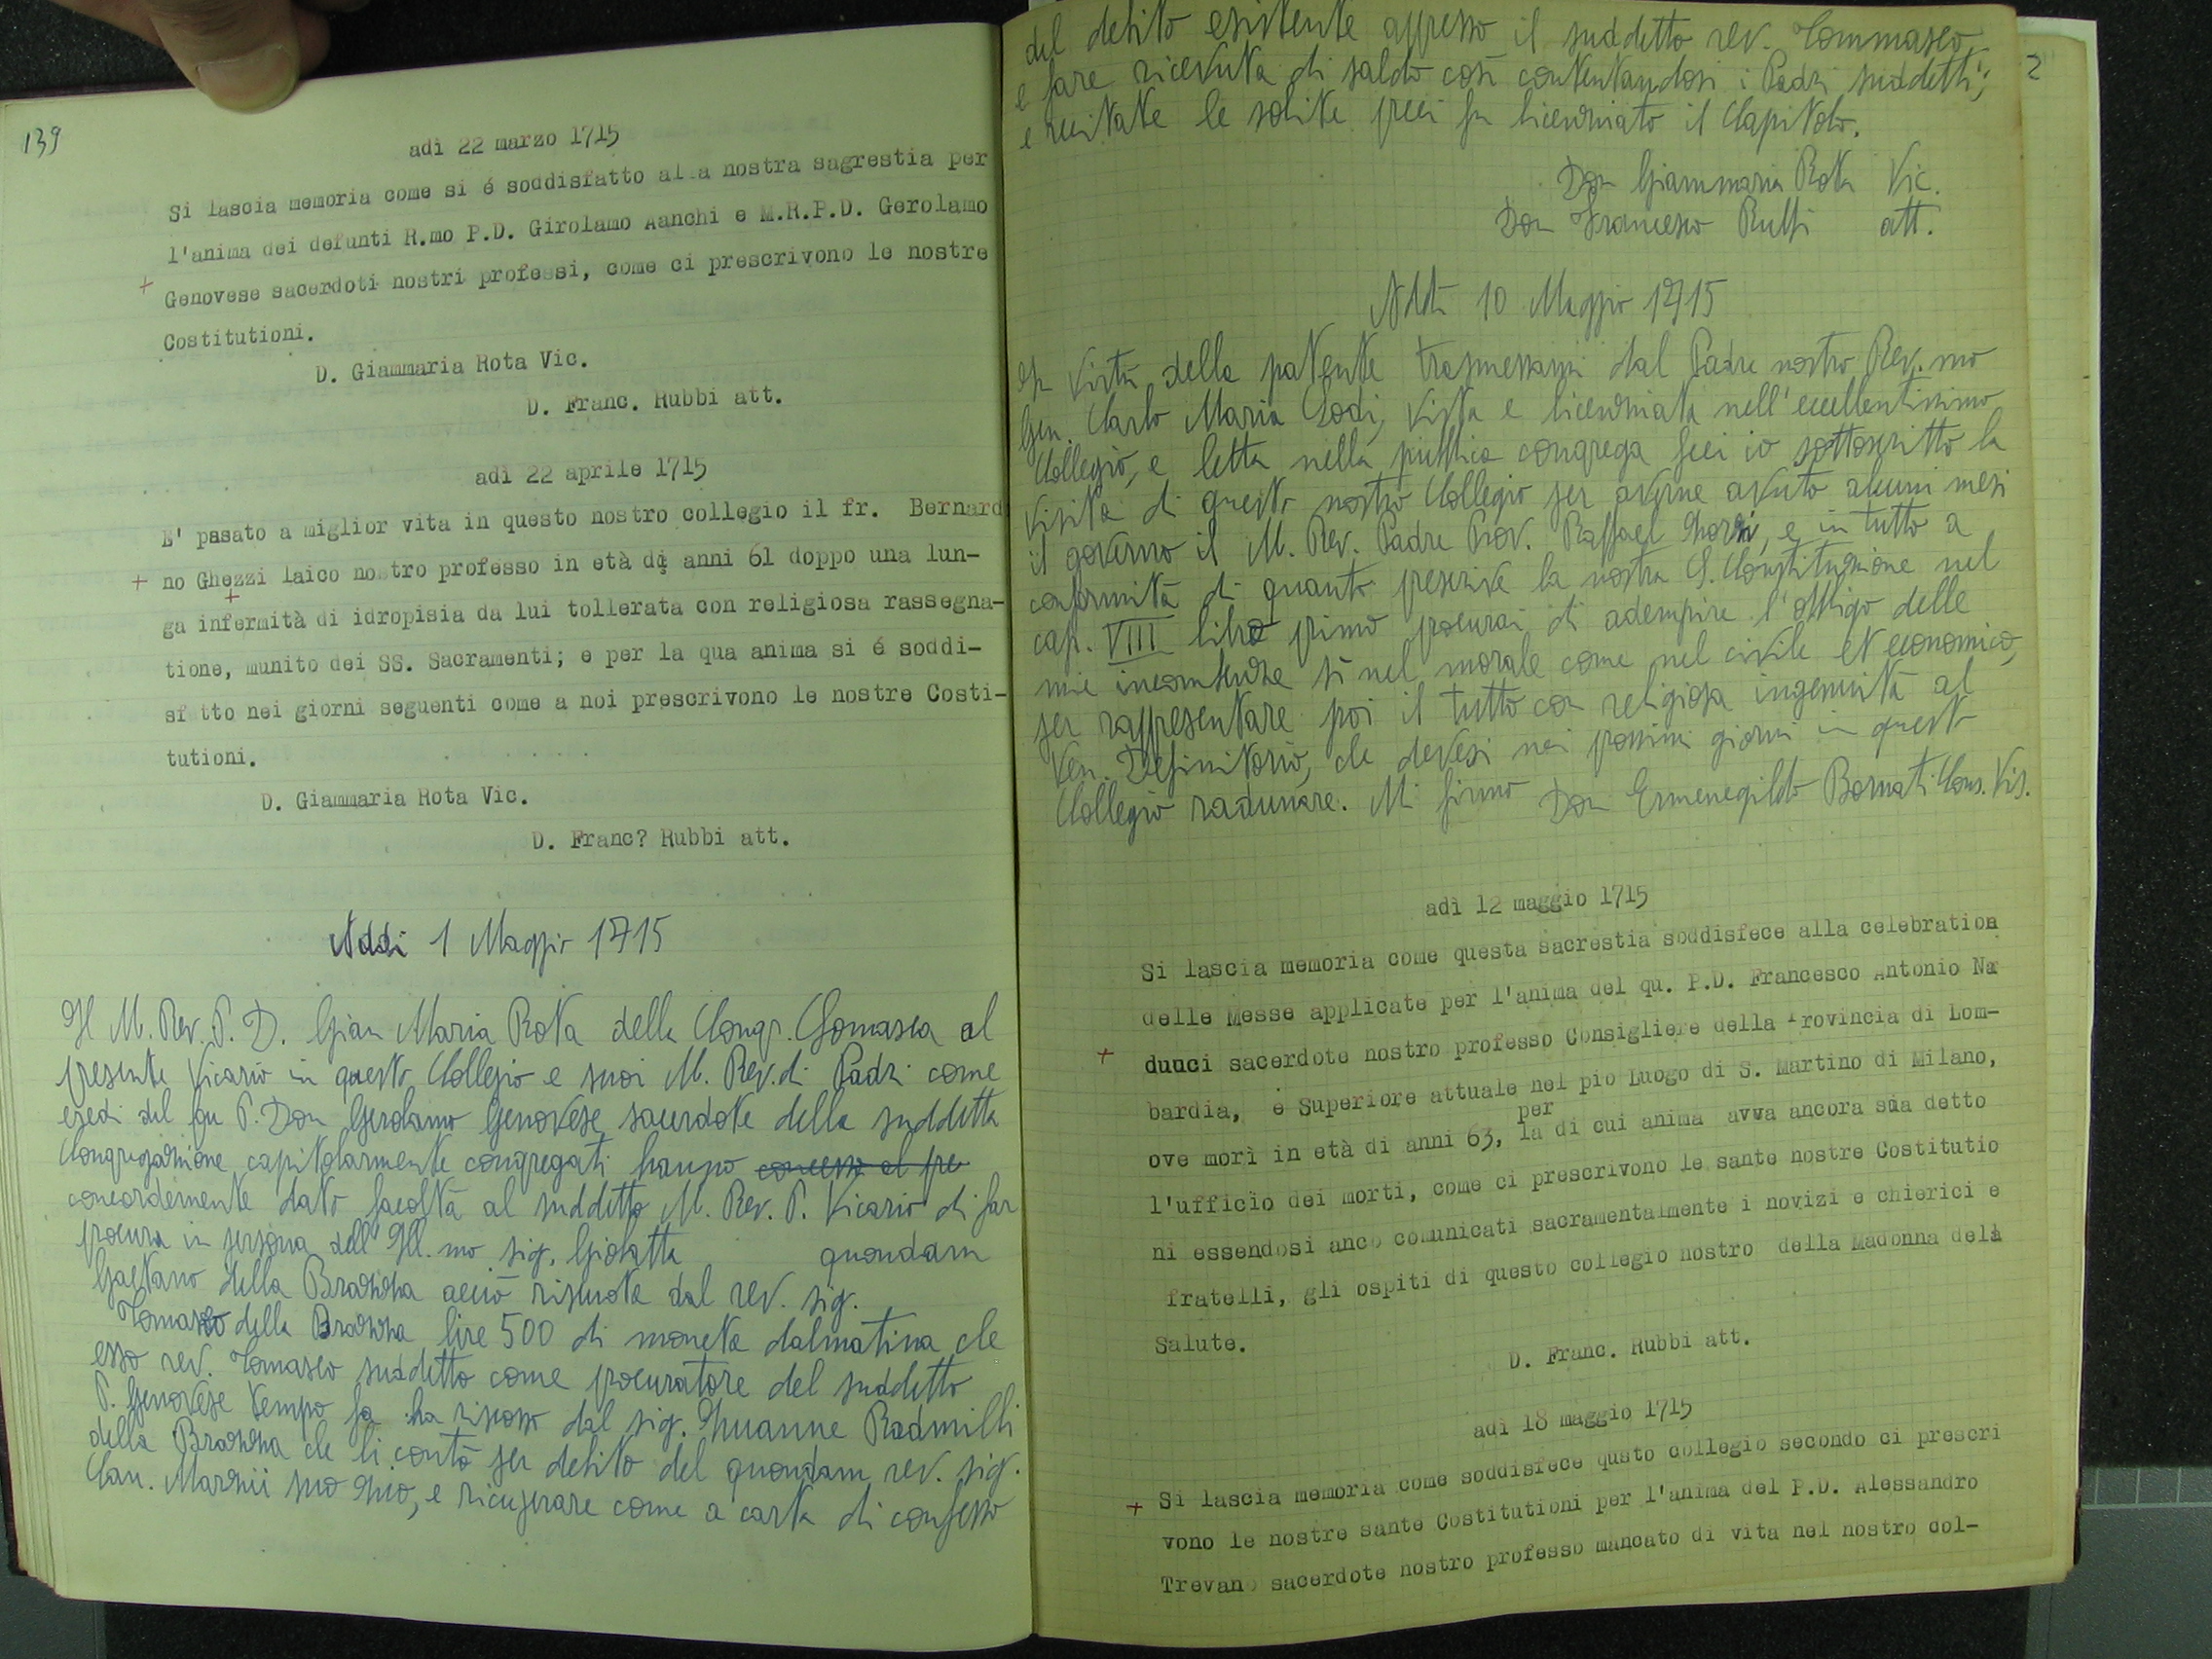 139
adì 22 marzo 1715
Si lascia memoria come si é soddisfatto alla nostra sagrestia per
l'anima dei defunti R.mo P.D. Girolamo Aanchi e M.R.P.D. Gerolamo
+ Genovese sacerdoti nostri professi, come ci prescrivono le nostre
Costitutioni.
D. Giammaria Rota Vic.
D. Franc. Rubbi att.
adì 22 aprile 1715
E' pasato a miglior vita in questo nostro collegio il fr. Bernard
+ no Ghezzi laico nostro professo in età di anni 61 doppo una lun-
+
ga infermità di idropisia da lui tollerata con religiosa rassegna-
tione, munito dei SS. Sacramenti; e per la qua anima si é soddi-
sfatto nei giorni seguenti come a noi prescrivono le nostre Costi-
tutioni.
D. Giammaria Rota Vic.
D. Franc? Rubbi att.
Addi 1 Maggio 1715
Il M. Rev. P. D. Gian Maria Rota della Congr. Somasca al
presente Vicario in questo Collegio e suoi M. Rev.di Padri come
eredi del qu P. Don Gerolamo Genovese sacerdote della suddetta
Congregazione capitolarmente congregati hanno concesso al pre
concordemente dato facoltà al suddetto M. Rev. P. Vicario di far
procura in persona dell'Ill.mo sig. quondam
Gaetano della Brazza acciò riscuota dal rev. sig.
Tomaseo della Brazza lire 500 di moneta dalmatina che
esso rev. Tomaseo suddetto come procuratore del suddetto
P. Genovese tempo fa ha riscosso dal sig. Zuanne Radmilli
della Brazza che li contò per debito del quondam rev. sig.
Can. Marzii suo zio, e ricuperare come a carta di confesso
2
del debito esistente appresso il suddetto rev. Tommaseo
e fare ricevuta di saldo così contentandosi i Padri suddetti;
e recitate le solite preci fu licenziato il Capitolo.
Don Giammaria Rota Vic.
Don Francesco Rubbi att.
Addì 10 Maggio 1715
In virtù della patente trasmessami dal Padre nostro Rev.mo
Gen. Carlo Maria Lodi, vista e licenziata nell'eccellentissimo
Collegio, e letta nella pubblica congrega feci io sottoscritto la
visita di questo nostro Collegio per averne avuto alcuni mesi
il governo il M. Rev. Padre Prov. Raffael, e in tutto a
conformità di quanto prescrive la nostra S. Constituzione nel
cap. VIII libro primo procurai di adempire l'obbligo delle
mie incombenze sì nel morale come nel civile et economico,
per rappresentare poi il tutto con religiosa ingenuità al
Ven. Definitorio, che devesi nei prossimi giorni in questo
Collegio radunare. Mi firmo Don Ermenegildo Bornati Cons. Vis.
adì 12 maggio 1715
Si lascia memoria come questa sacrestia soddisfece alla celebration
delle Messe applicate per l'anima del qu. P.D. Francesco Antonio Na
+ duuci sacerdote nostro professo Consigliere della Provincia di Lom-
bardia, e Superiore attuale nel pio Luogo di S. Martino di Milano,
per
ove morì in età di anni 63, la di cui anima avva ancora sùa detto
l'ufficio dei morti, come ci prescrivono le sante nostre Costitutio
ni essendosi anco comunicati sacramentalmente i novizi e chierici e
fratelli, gli ospiti di questo collegio nostro della Madonna della
Salute.
D. Franc. Rubbi att.
adì 18 maggio 1715
+ Si lascia memoria come soddisfece qusto collegio secondo ci prescri
vono le nostre sante Costitutioni per l'anima del P.D. Alessandro
Trevano sacerdote nostro professo mancato di vita nel nostro col-